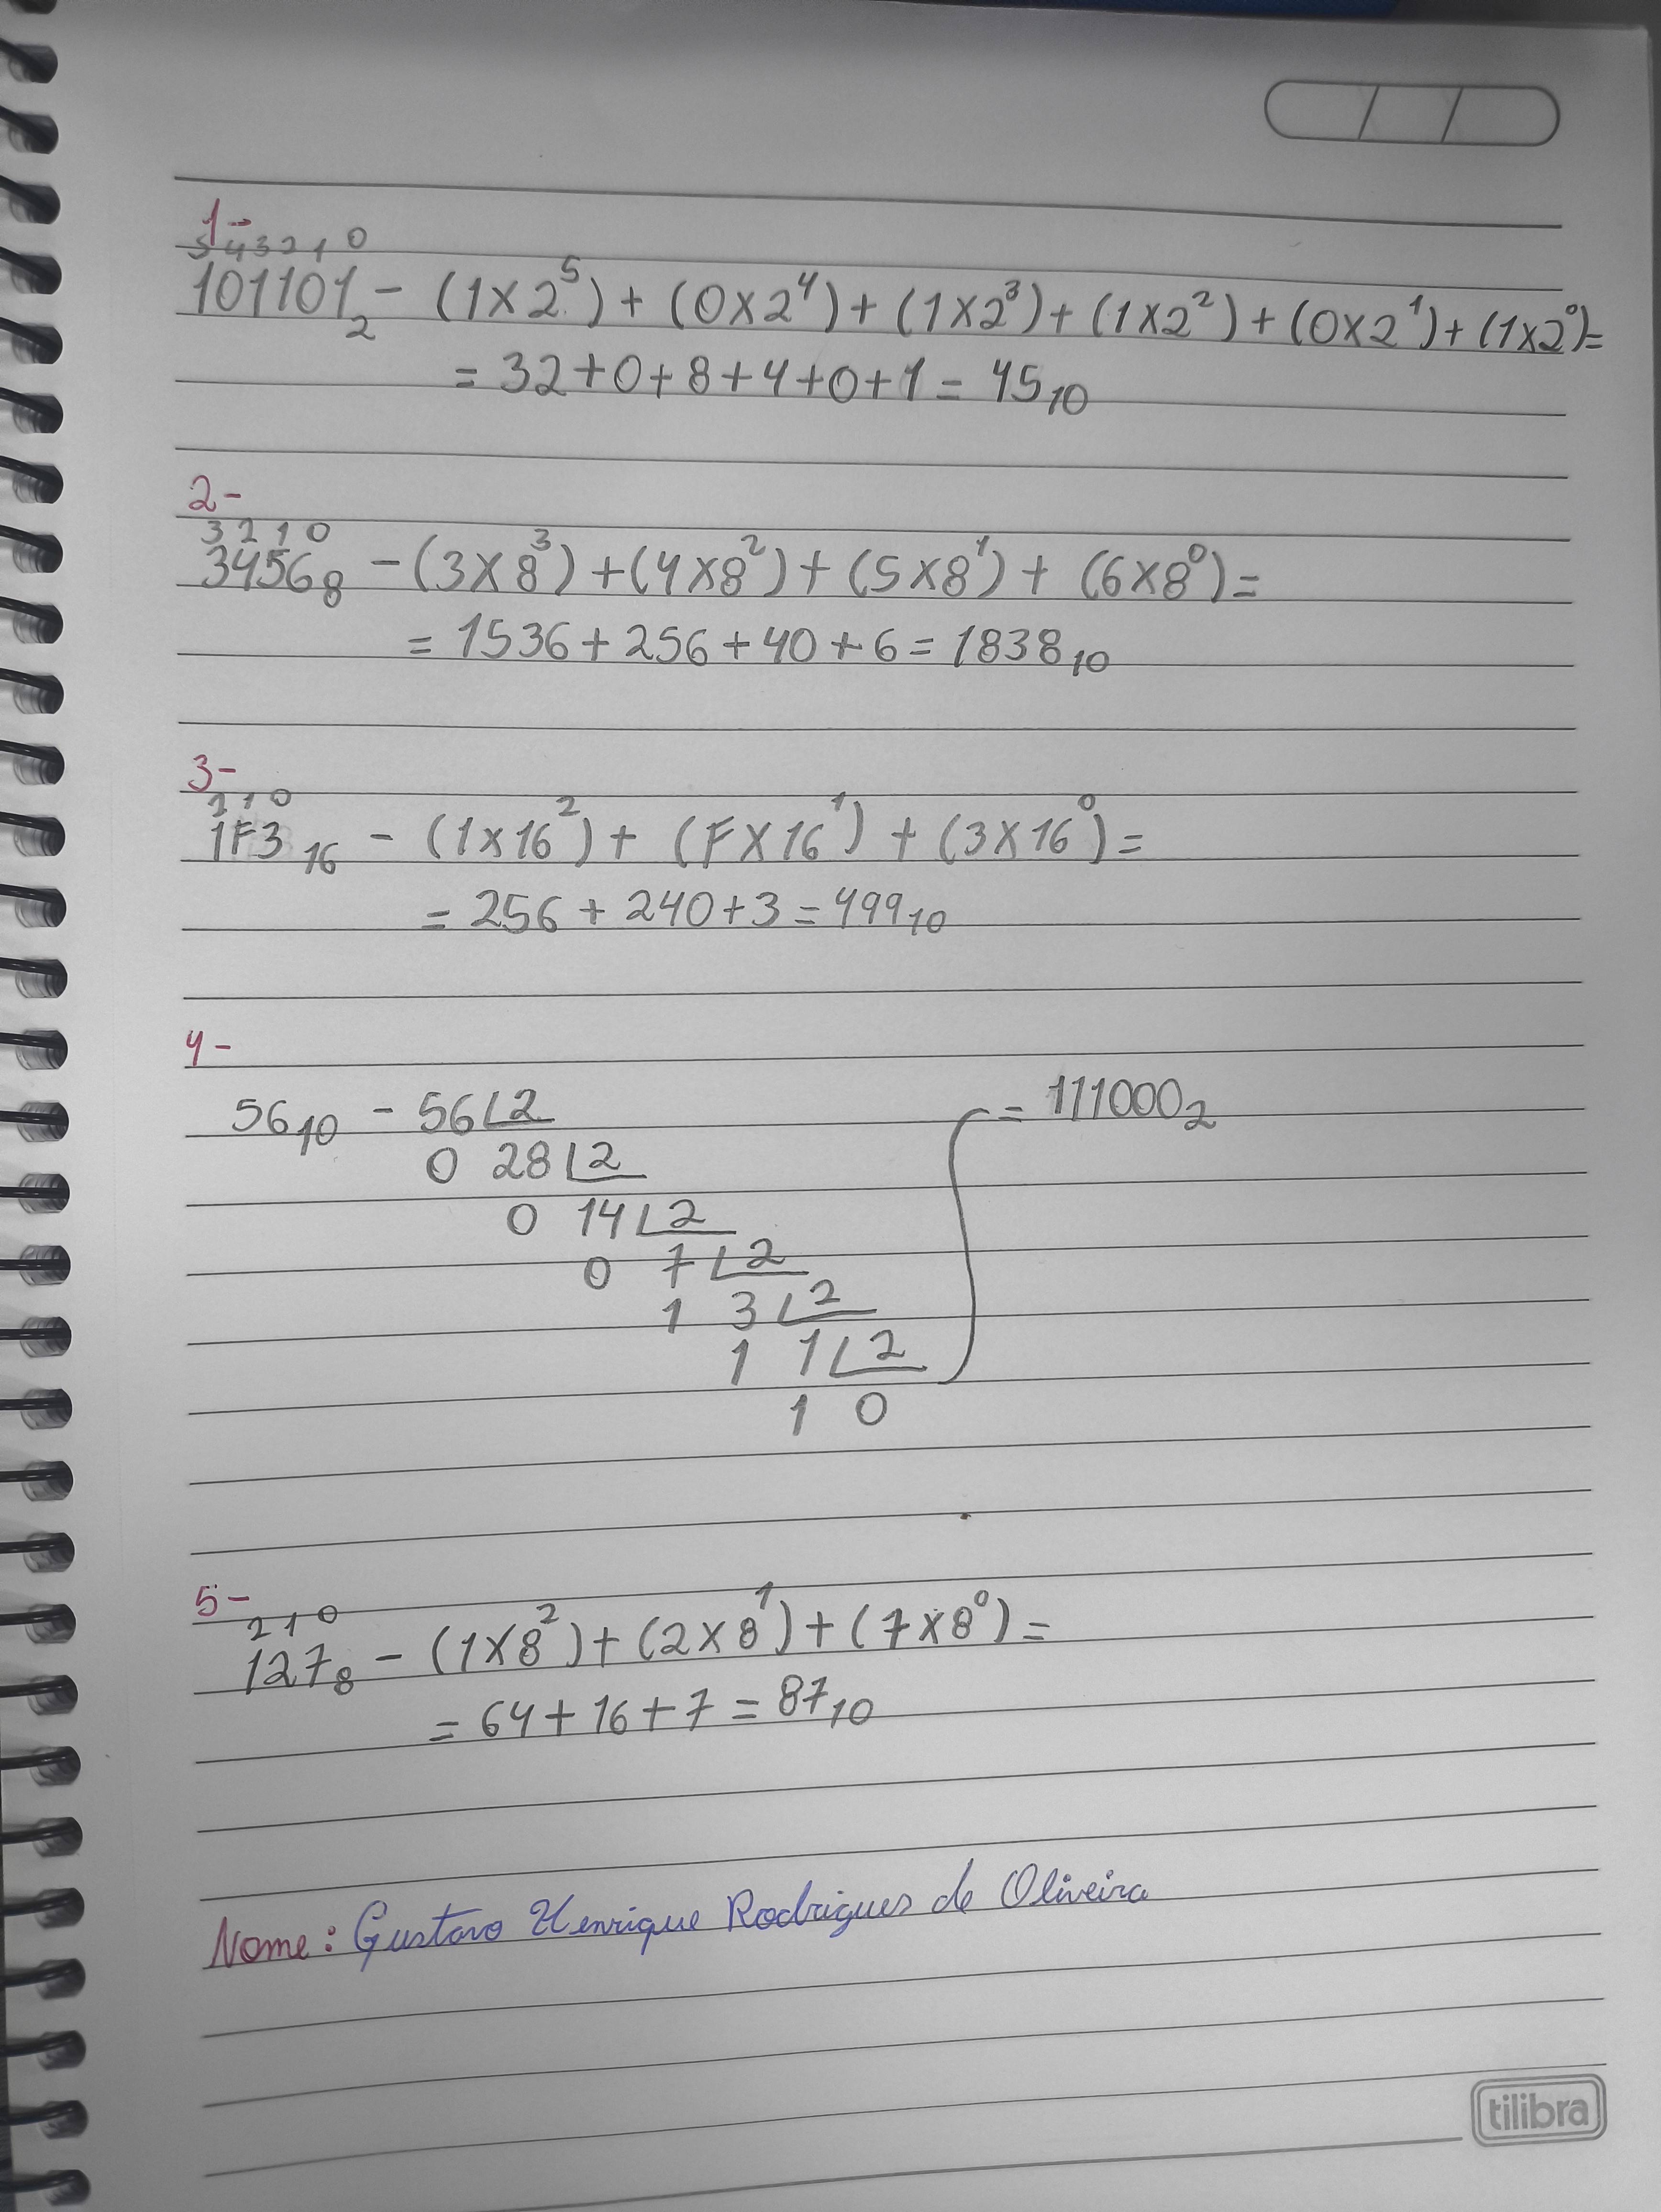 1-
5 4 3 2 1 0
101101₂ - (1x2⁵) + (0x2⁴) + (1x2³) + (1x2²) + (0x2¹) + (1x2⁰) =
= 32+0+8+4+0+1 = 45₁₀
2-
3 2 1 0
3456₈ - (3x8³) + (4x8²) + (5x8¹) + (6x8⁰) =
= 1536 + 256 + 40 + 6 = 1838₁₀
3-
2 1 0
1F3₁₆ - (1x16²) + (Fx16¹) + (3x16⁰) =
= 256 + 240 + 3 = 499₁₀
4-
56₁₀ - 56 2 = 111000₂
0 28 2
0 14 2
0 7 2
1 3 2
1 1 2
1 0
5-
2 1 0
127₈ - (1x8²) + (2x8¹) + (7x8⁰) =
= 64 + 16 + 7 = 87₁₀
Nome: Gustavo Henrique Rodrigues de Oliveira
tilibra